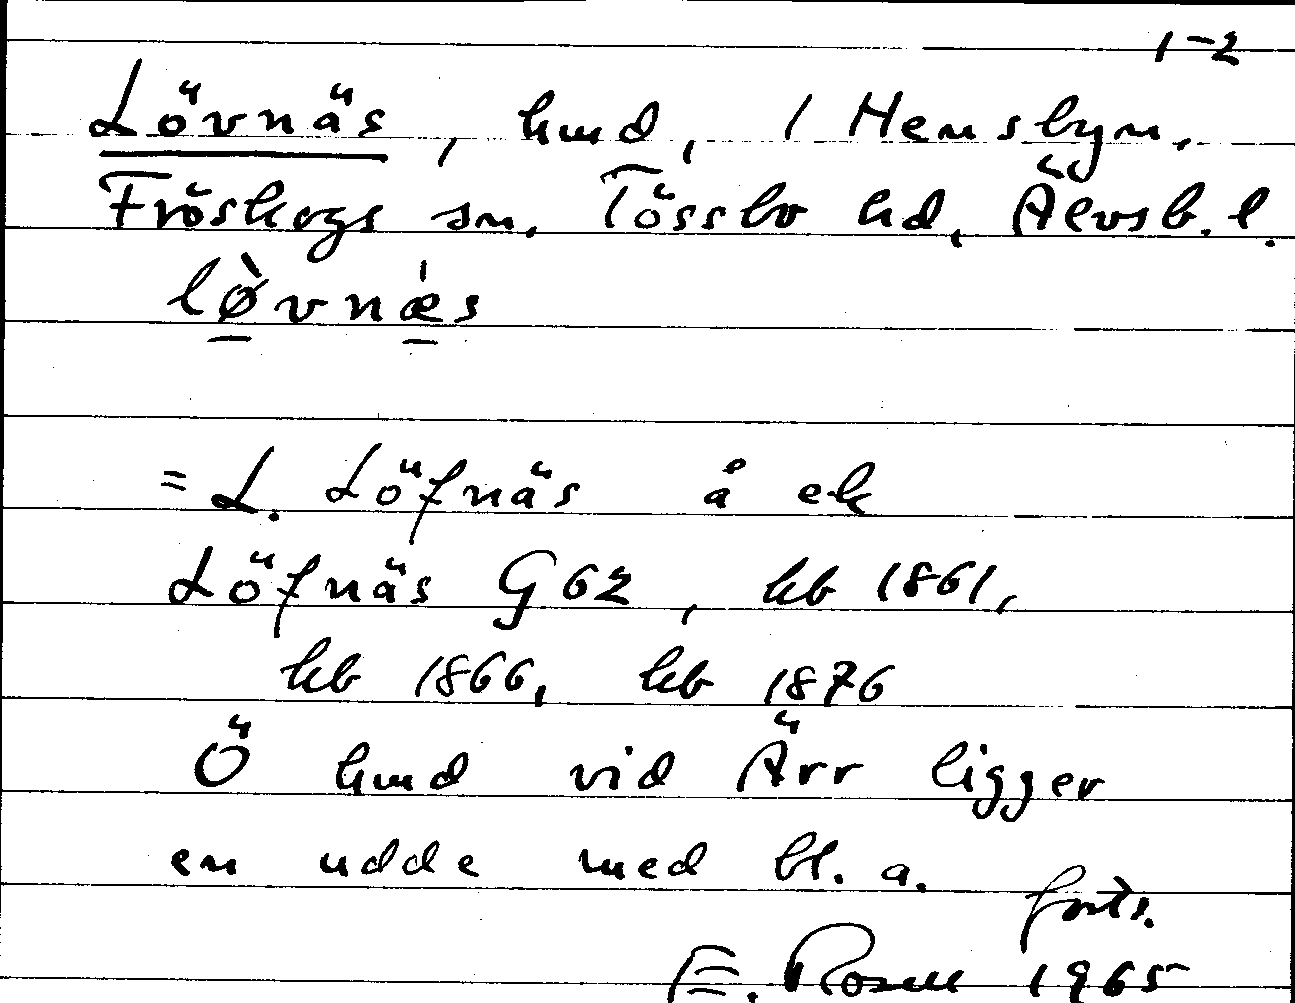 1-2
Lövnäs, hmd, / Hemsbyn.
Fröskogs sn. Tössbo hd, Älvsb. l.
lø̀vnæ̍s
= L. Löfnäs å ek
Löfnäs G 62, hb 1861,
hb 1866, hb 1876
Ö hmd vid Ärr ligger
en udde med bl. a.
forts.
E. Rosell 1965